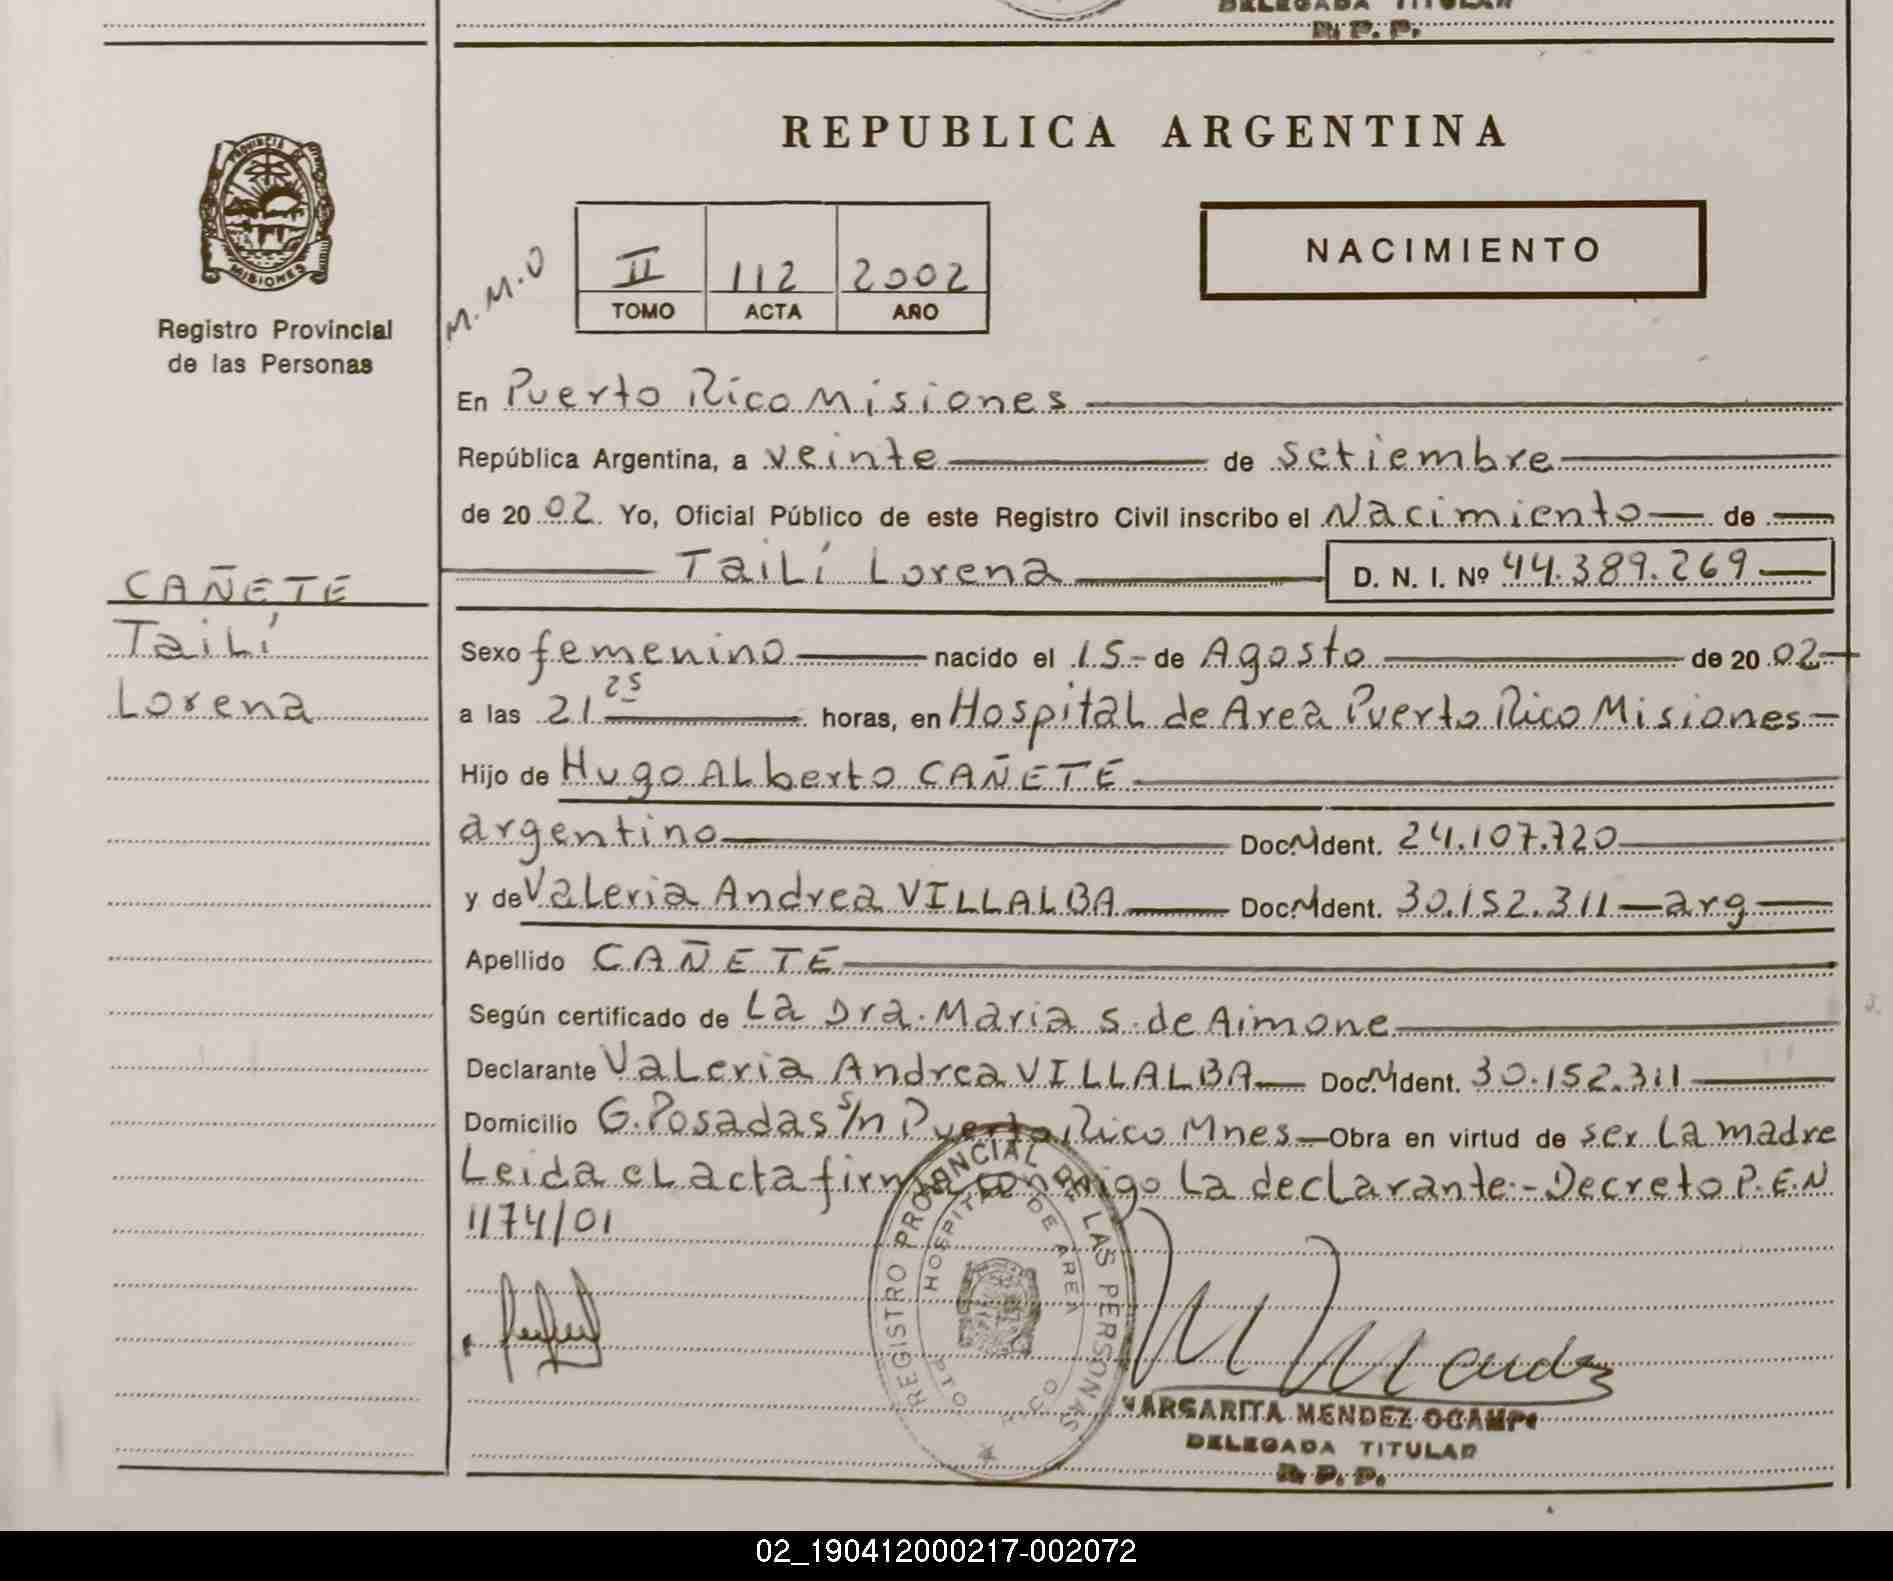 DELEGADA TITULAR
R. P. P.
REPUBLICA ARGENTINA
PROVINCIA DE
MISIONES
Registro Provincial
de las Personas
M.M.O
II 112 2002
TOMO ACTA AÑO
NACIMIENTO
En Puerto Rico Misiones
República Argentina, a veinte de setiembre
de 2002. Yo, Oficial Público de este Registro Civil inscribo el Nacimiento de
Tailí Lorena D. N. I. Nº 44.389.269
CAÑETE
Tailí
Lorena
Sexo femenino nacido el 15 de Agosto de 2002
a las 21 25 horas, en Hospital de Area Puerto Rico Misiones
Hijo de Hugo Alberto CAÑETE
argentino Doc.N Ident. 24.107.720
y de Valeria Andrea VILLALBA Doc.N Ident. 30.152.311 arg
Apellido CAÑETE
Según certificado de La Dra. Maria S. de Aimone
Declarante Valeria Andrea VILLALBA Doc.N Ident. 30.152.311
Domicilio G. Posadas s/n Puerto Rico Mnes Obra en virtud de ser la madre
Leida el acta firma conmigo la declarante - Decreto P.E.N
1174/01
REGISTRO PROVINCIAL DE LAS PERSONAS
HOSPITAL DE AREA
M Mendez
MARGARITA MENDEZ OCAMPO
DELEGADA TITULAR
R. P. P.
02_190412000217-002072